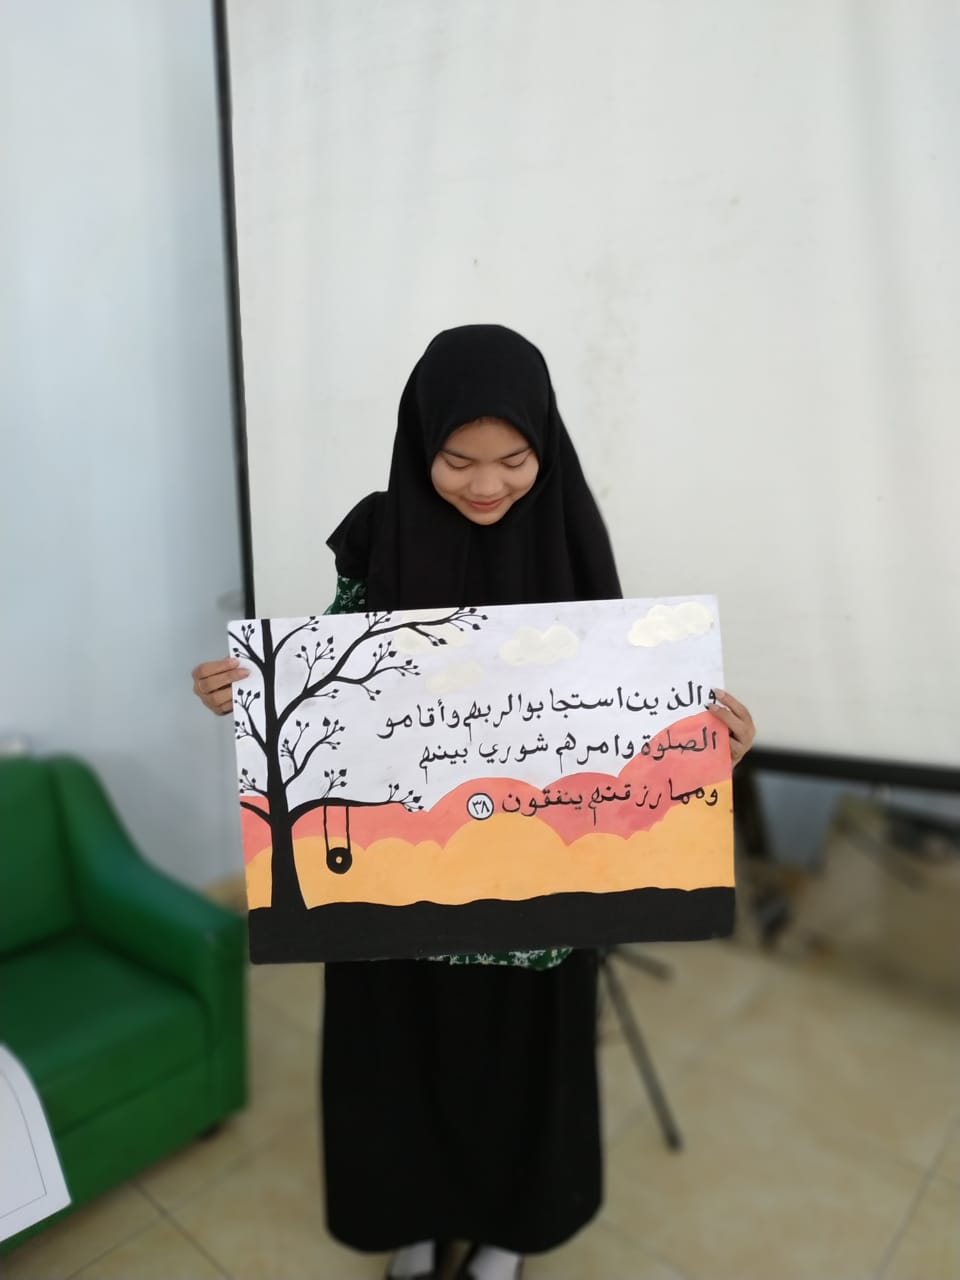 والذين استجابوا لربهم وأقامو
الصلوة وامرهم شوري بينهم
ومما رزقنهم ينفقون ٣٨